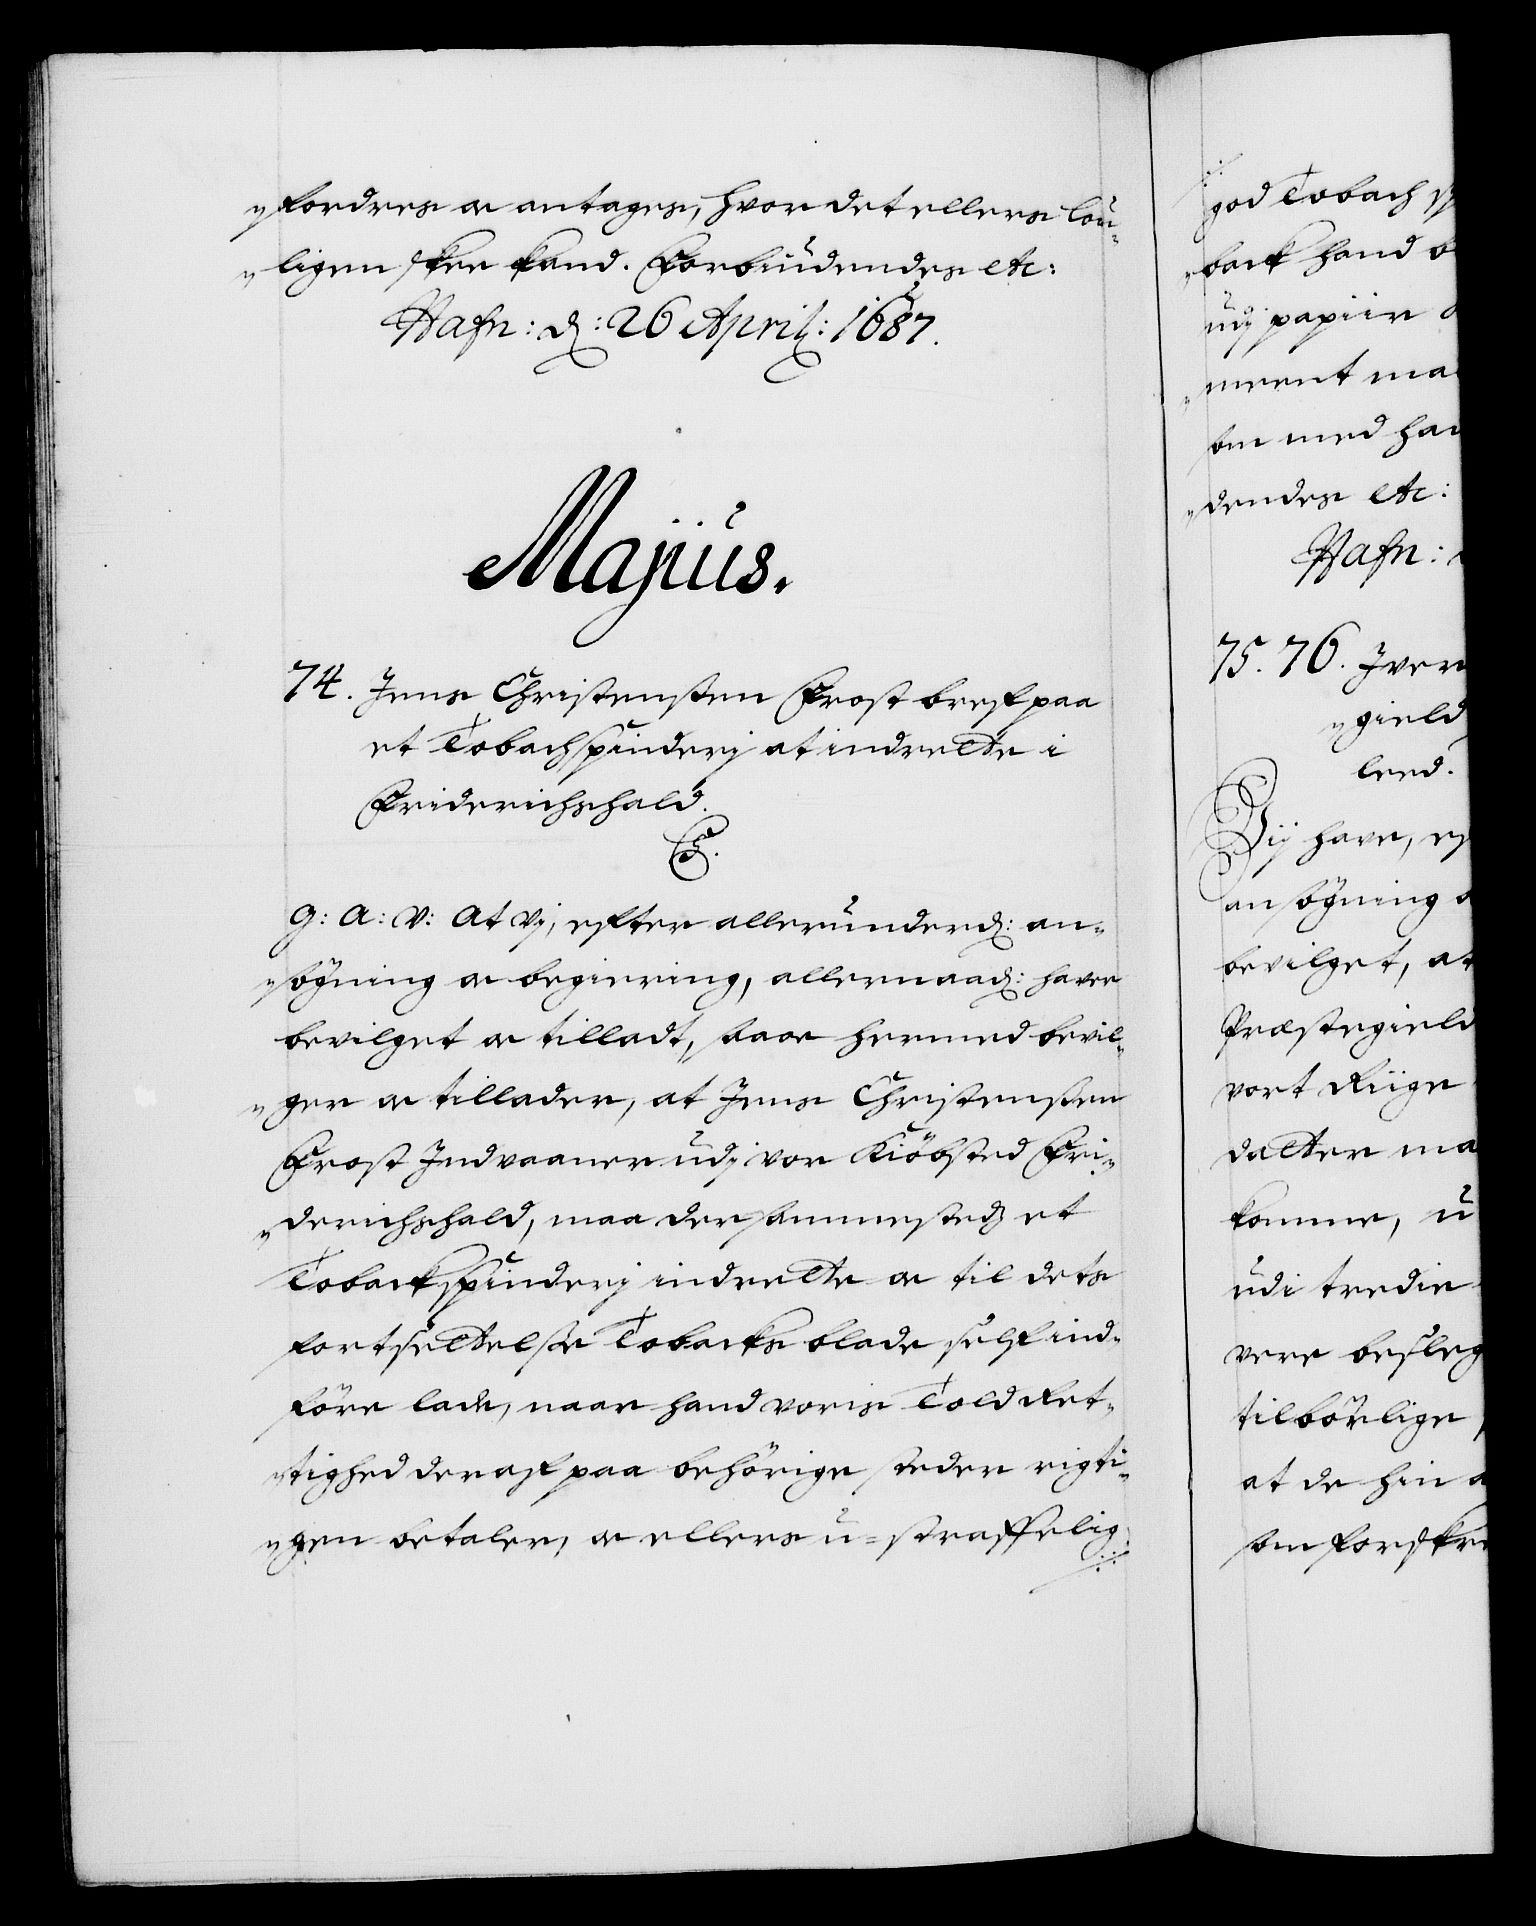 fordres oc antages, hvor det ellers lou-
ligen skee kand. Forbiudendes etc:
Hafn: d: 26 April: 1687.
Majus.
74. Jens Christensøn Frost bref paa
et Tobachspinderj at indrette i
Friderichshald.
G: A: V: At Vj, efter allerunderd: an-
søgning oc begiering, allernaad: have
bevilget oc tilladt, saa oc hermed bevil-
ger oc tillader, at Jens Christensøn
Frost Indvaaner udj vor Kiöbsted Fri-
derichshald, maa der sammesteds et
Tobackspinderj indrette oc til dets
fortsettelse Tobacks blade self ind-
före lade, naar hand voris Told Ret-
tighed deraf paa behörige steder rigti-
gen betaler, oc ellers u-straffelig
god Tobach
back hand
udj papiir
ment
som med
dendes etc:
Hafn:
75. 76. Iver
gield
leed.
Vij have,
ansögning
bevilget, at
Præstegield
vort Riige
datter
komme, u
udi tredie
vere besleg
tilbörlige
at de hin
som forskre